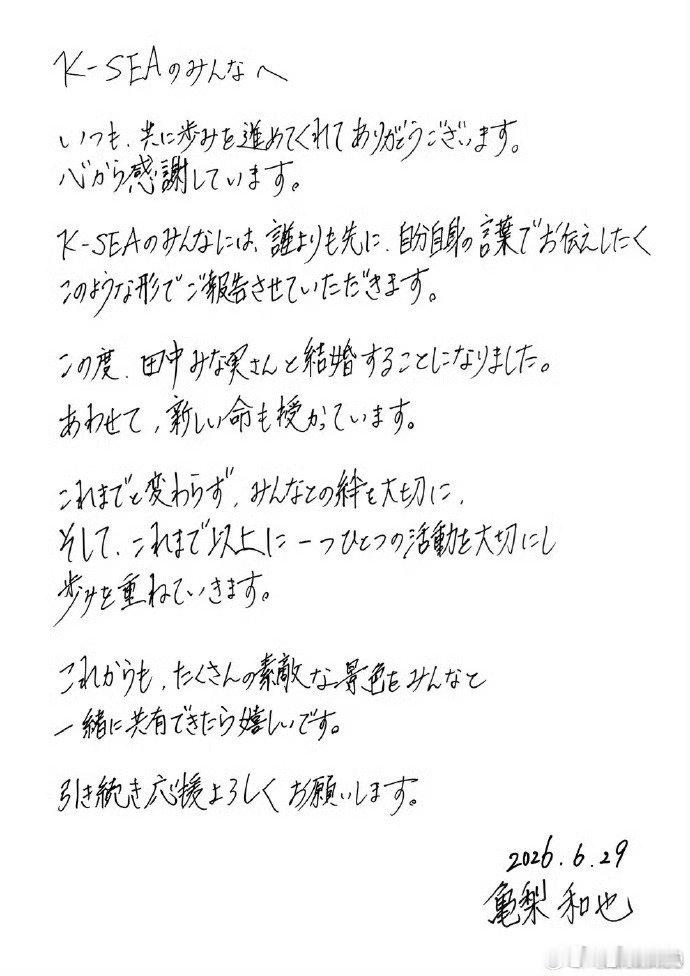 K-SEAのみんなへ
いつも、共に歩みを進めてくれてありがとうございます。
心から感謝しています。
K-SEAのみんなには、誰よりも先に、自分自身の言葉でお伝えしたく
このような形でご報告させていただきます。
この度、田中みな実さんと結婚することになりました。
あわせて、新しい命も授かっています。
これまでと変わらず、みんなとの絆を大切に、
そして、これまで以上に一つひとつの活動を大切にし
歩みを重ねていきます。
これからも、たくさんの素敵な景色をみんなと
一緒に共有できたら嬉しいです。
引き続き応援よろしくお願いします。
2026.6.29
亀梨和也